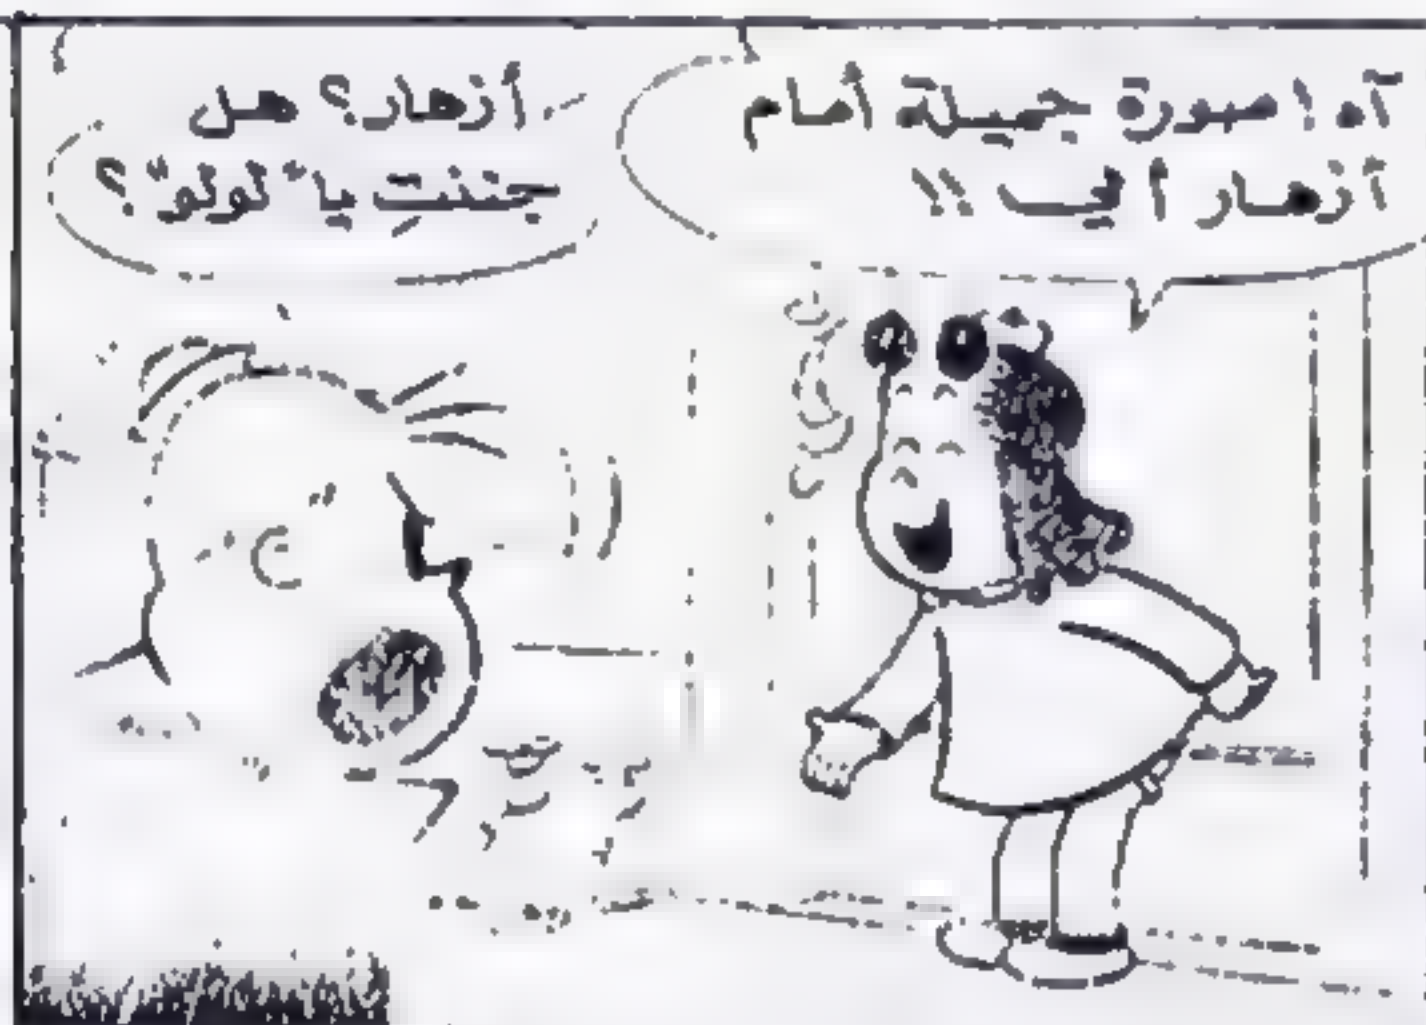 آه ! صورة جميلة أمام
أزهار أبي !!
أزهار؟ هل
جننتِ يا "لولو" ؟